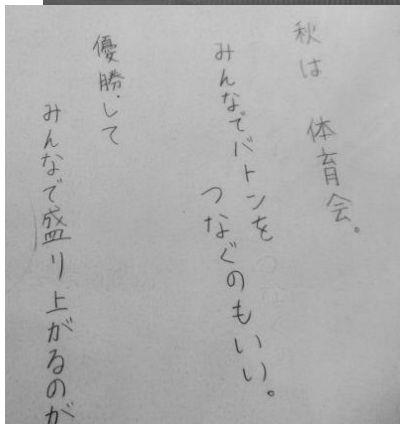 秋は 体育会。
みんなでバトンを
つなぐのもいい。
優勝して
みんなで盛り上がるのが